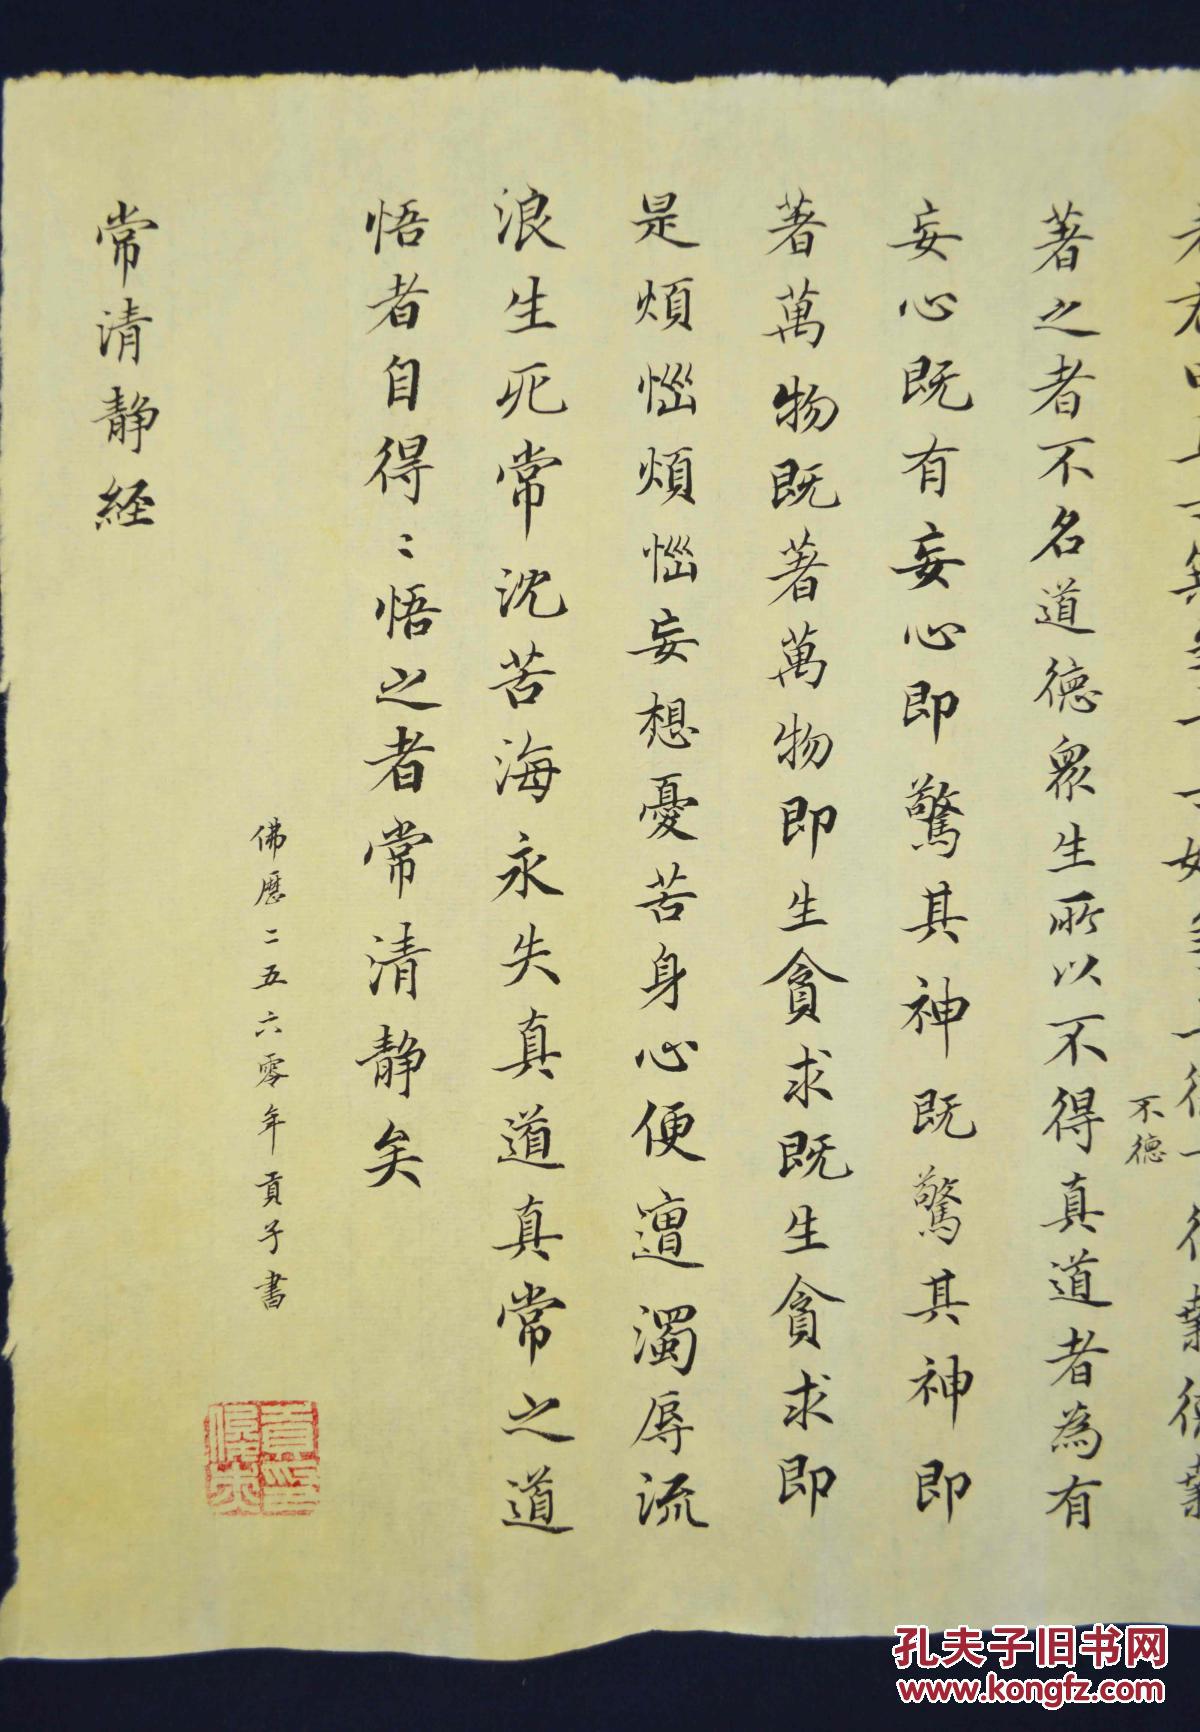 不德
著之者不名道德眾生所以不得真道者為有
妄心既有妄心即驚其神既驚其神即
著萬物既著萬物即生貪求既生貪求即
是煩惱煩惱妄想憂苦身心便遭濁辱流
浪生死常沈苦海永失真道真常之道
悟者自得〻悟之者常清静矣
佛曆二五六零年貢子書
常清静経
孔夫子旧书网
www.kongfz.com